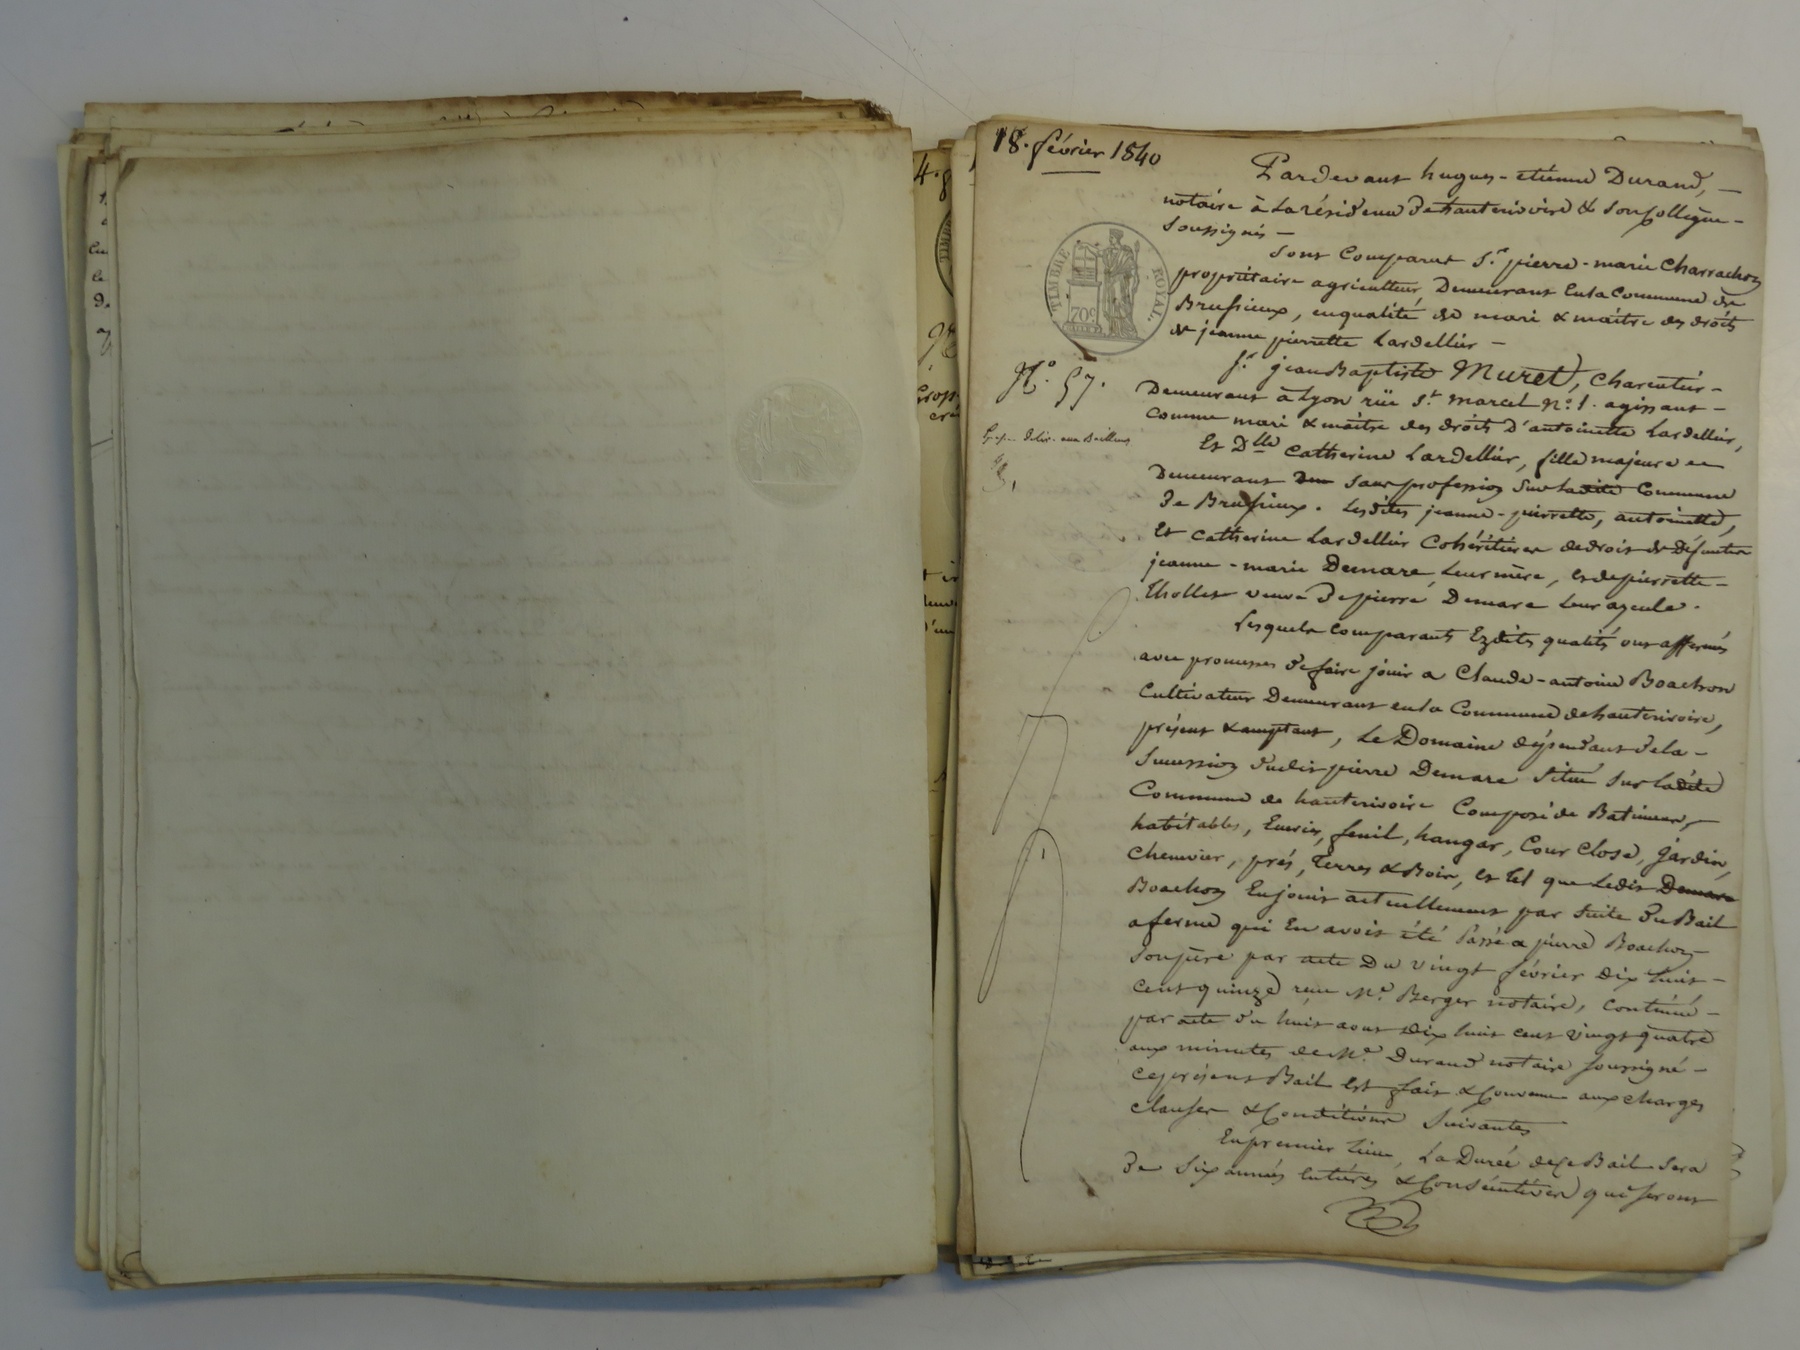 18. février 1840
Pardevant hugues-etienne Durand,
notaire à la résidence de hauterivoire & son Collègue
soussignés
TIMBRE ROYAL
70c
Sont Comparus Sr. pierre-marie Charrachon
propriétaire agriculteur Demeurant En la Commune de
Brussieux, en qualité de mari & maître des droits
de jeanne pierrette Lardellier
Sr. jean Baptiste Muret, Charcutier
N.° 57.
Demeurant à Lyon rüe St. marcel N.° 1. agissant
Comme mari & maître des droits D'antoinette Lardellier,
Et Dlle Catherine Lardellier, fille majeure
Demeurant sans profession Sur ladite Commune
de Brussieux. Lesdites jeanne-pierrette, antoinette,
Et Catherine Lardellier Cohéritieres de droit de Défuntes
jeanne-marie Demare, Leur mère, et de pierrette
Thollet veuve de pierre Demare Leur ayeule.
Lesquels Comparants Ezdites qualités ont affermé
avec promesses de faire jouir a Claude-antoine Boachon
Cultivateur Demeurant en la Commune de hauterivoire,
présent & acceptant, Le Domaine dépendant de la
Succession dudit pierre Demare Situé Sur ladite
Commune de hauterivoire Composé de Batiments
habitables, Ecuries, fenil, hangar, Cour Close, Jardin,
Chenevier, prés, Terres & Bois, et tel que Ledit Demare
Boachon En jouit actuellement par Suite du Bail
a ferme qui En avoit été Passé a pierre Boachon
Son père par acte Du vingt février dix huit
cent quinze reçu Me. Berger notaire, Continué
par acte du huit aout dix huit cent vingt quatre
aux minutes de Me. Durand notaire soussigné
Ce présent Bail est fait & Convenu aux charges
Clauses & Conditions Suivantes
En premier lieu, La Durée de Ce Bail Sera
De Six années Entieres & Consécutives qui Seront